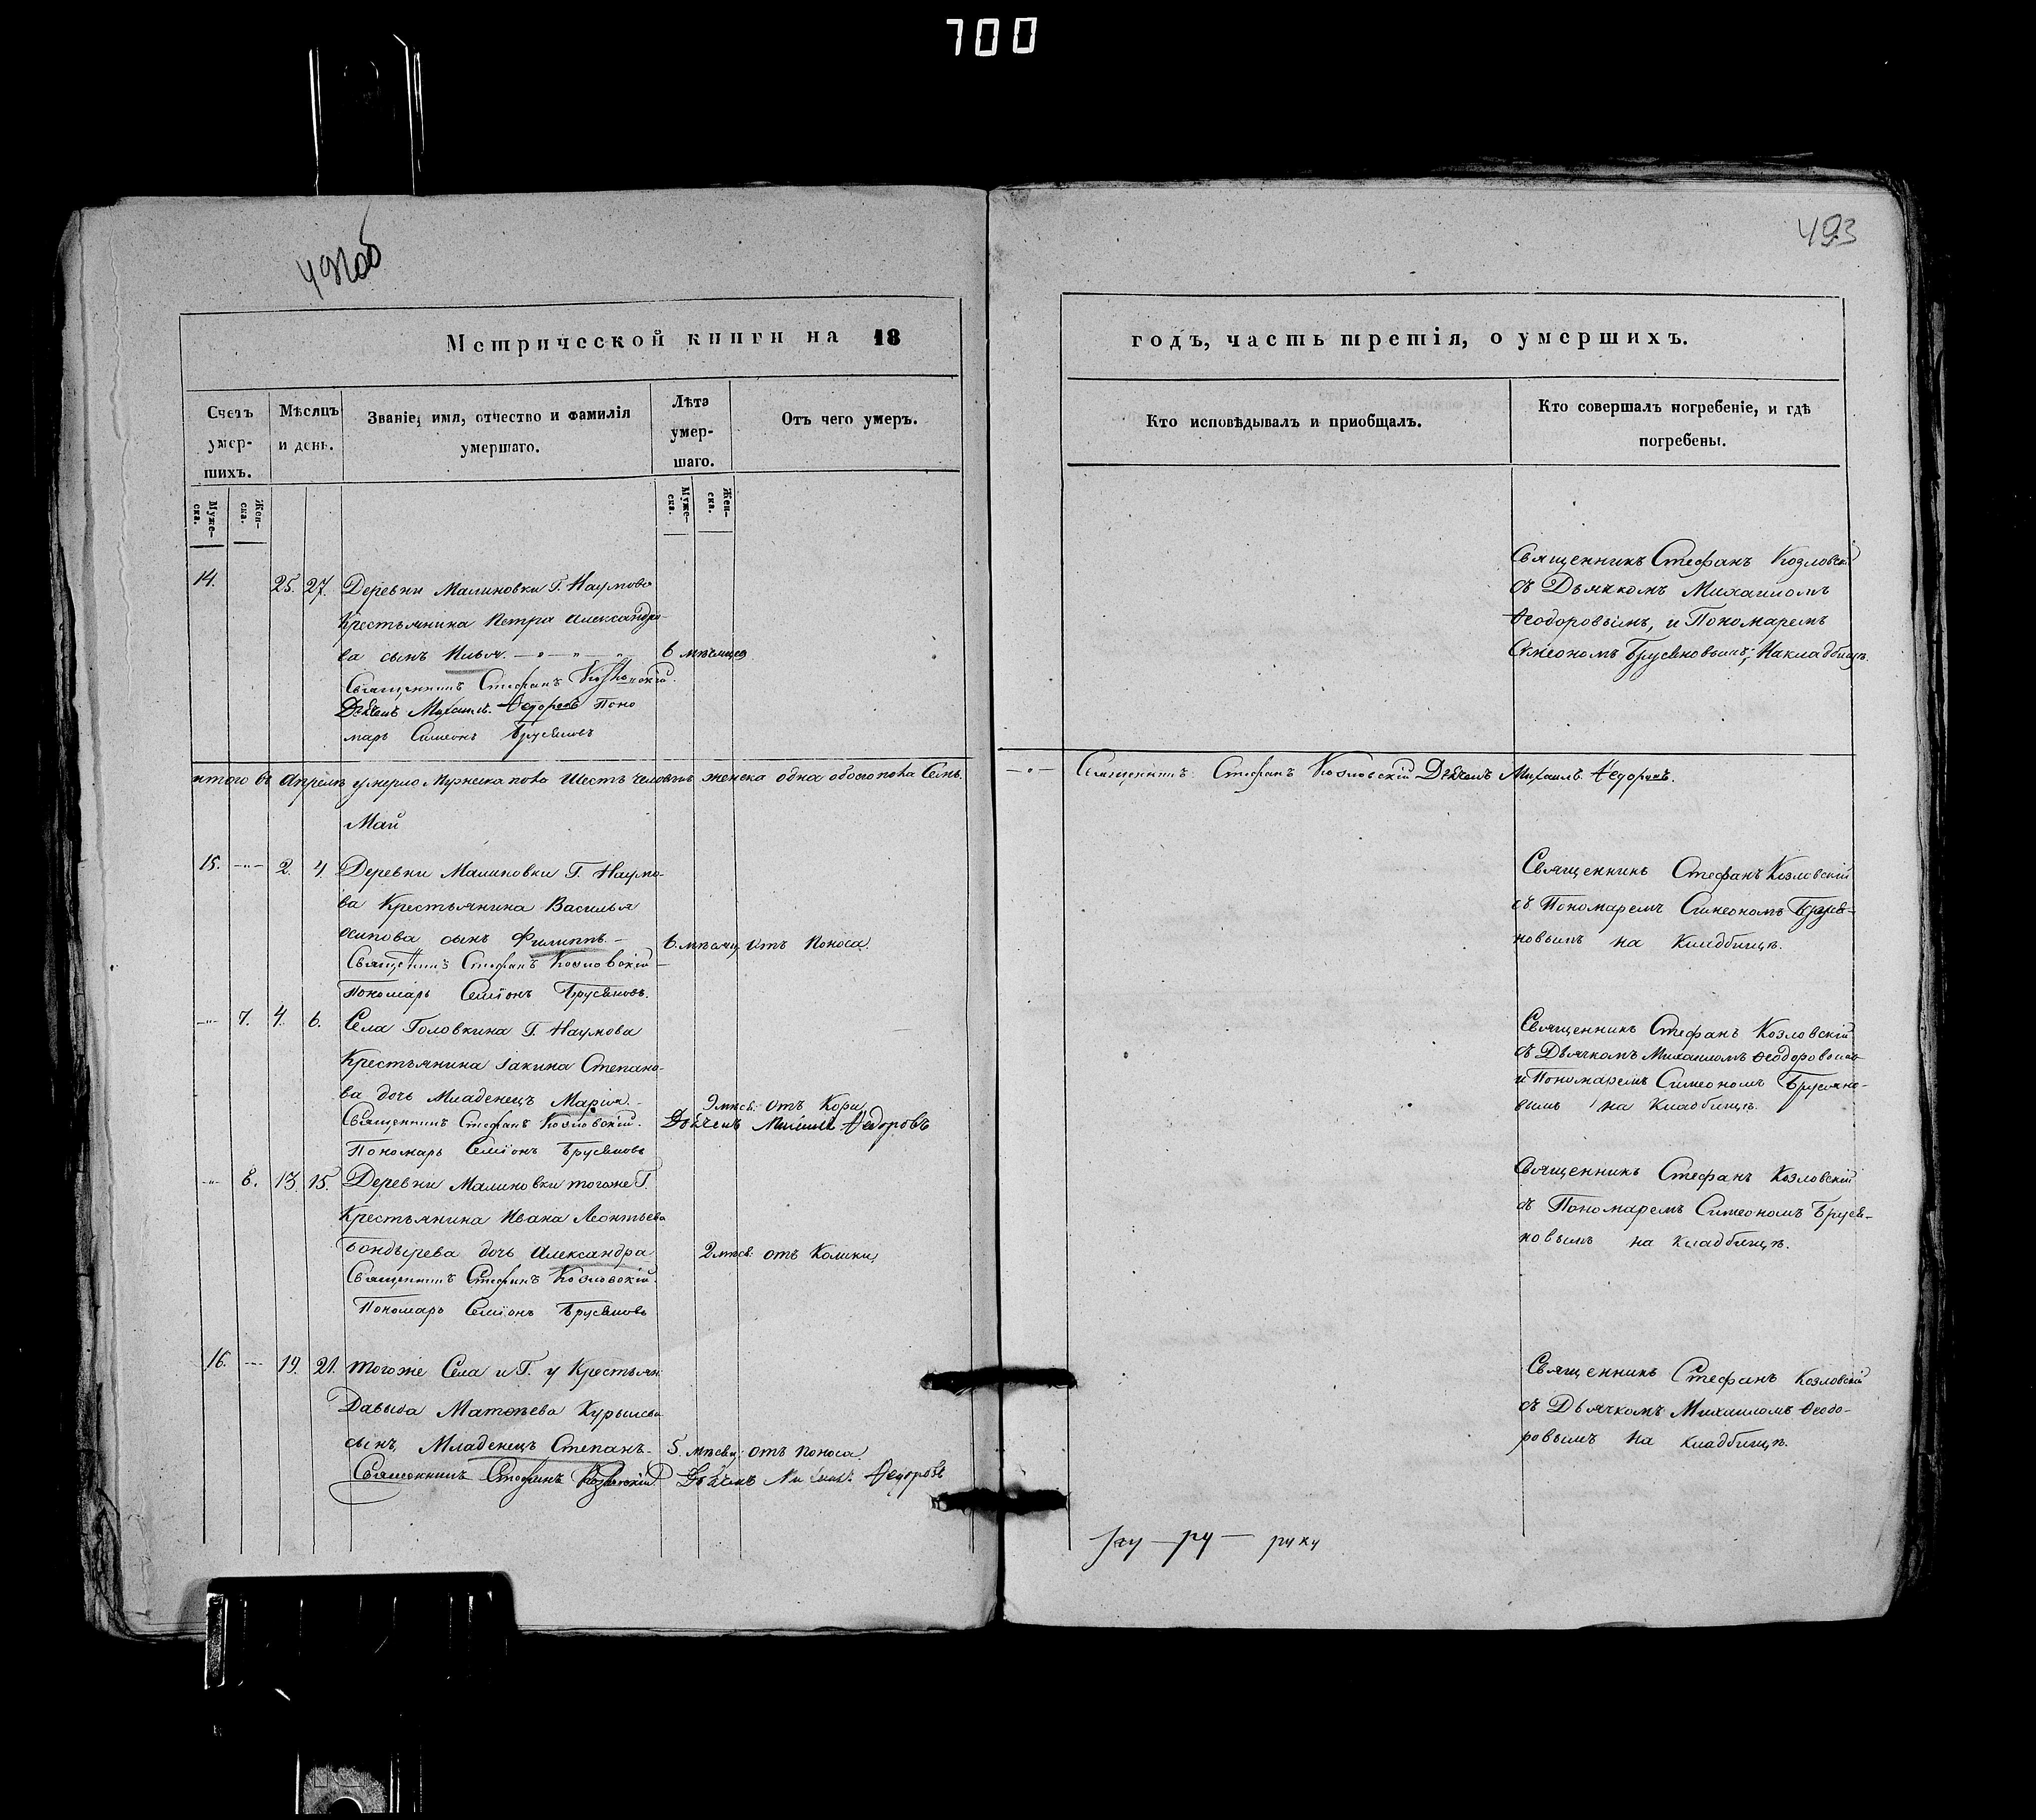 700
492об
493
Метрической книги на 18
годъ, часть третія, о умершихъ.
Счетъ умер-шихъ.
Мѣсяцъ и день.
Званіе, имя, отчество и фамилія умершаго.
Лѣта умер-шаго.
Отъ чего умеръ.
Кто исповѣдывалъ и приобщалъ.
Кто совершалъ погребеніе, и гдѣ погребены.
Муже-ска.
Жен-ска.
Муже-ска.
Жен-ска.
14. 25. 27. Деревни Малиновки Г. Наумова
Крестьянина Петра Александро-
ва сынъ Илья. 6 мѣсяцев
Священникъ Стефанъ Козловскій.
Дьячекъ Михаилъ Ѳедоровъ Поно
марь Симеонъ Брусяновъ
Священникъ Стефанъ Козловскій
съ Дьячкомъ Михаиломъ
Ѳеодоровымъ, и Пономаремъ
Симеономъ Брусяновымъ; На кладбищѣ.
итого въ Апрѣлѣ умерло Мужеска пола Шесть человѣкъ женска одна обоего пола Семь.
Священникъ Стефанъ Козловскій Дьячекъ Михаилъ Ѳедоровъ.
Май
15. 2. 4. Деревни Малиновки Г. Наумо-
ва Крестьянина Василья
Осипова сынъ Филиппъ. 6. мѣсяц. отъ поноса
Священникъ Стефанъ Козловскій
Пономарь Семіонъ Брусяновъ.
Священникъ Стефанъ Козловскій
съ Пономаремъ Симеономъ Бруся-
новымъ на Кладбищѣ.
7. 4. 6. Села Головкина Г. Наумова
Крестьянина Іакима Степано-
ва дочь Младенецъ Марія. 9 мѣсв. отъ Кори
Священникъ Стефанъ Козловскій. Дьячекъ Михаилъ Ѳедоровъ
Пономарь Семіонъ Брусяновъ
Священникъ Стефанъ Козловскій
съ Дьячкомъ Михаиломъ Ѳеодоровымъ
и Пономаремъ Симеономъ Брусяно-
вымъ на Кладбищѣ.
8. 13. 15. Деревни Малиновки тогоже Г.
Крестьянина Ивана Леонтьева
Бондырева дочь Александра 2 мѣсв. отъ Колики
Священникъ Стефанъ Козловскій.
Пономарь Семіонъ Брусяновъ
Священникъ Стефанъ Козловскій
съ Пономаремъ Симеономъ Бруся-
новымъ на кладбищѣ.
16. 19. 21. тогоже Села и Г. у Крестьян.
Давыда Матвѣева Курышева
сынъ, Младенецъ Степанъ. 5. мѣсяц. отъ поноса.
Священникъ Стефанъ Козловскій Дьячекъ Михаилъ Ѳедоровъ
Священникъ Стефанъ Козловскій
съ Дьячкомъ Михаиломъ Ѳеодо-
ровымъ на кладбищѣ.
ру — руку